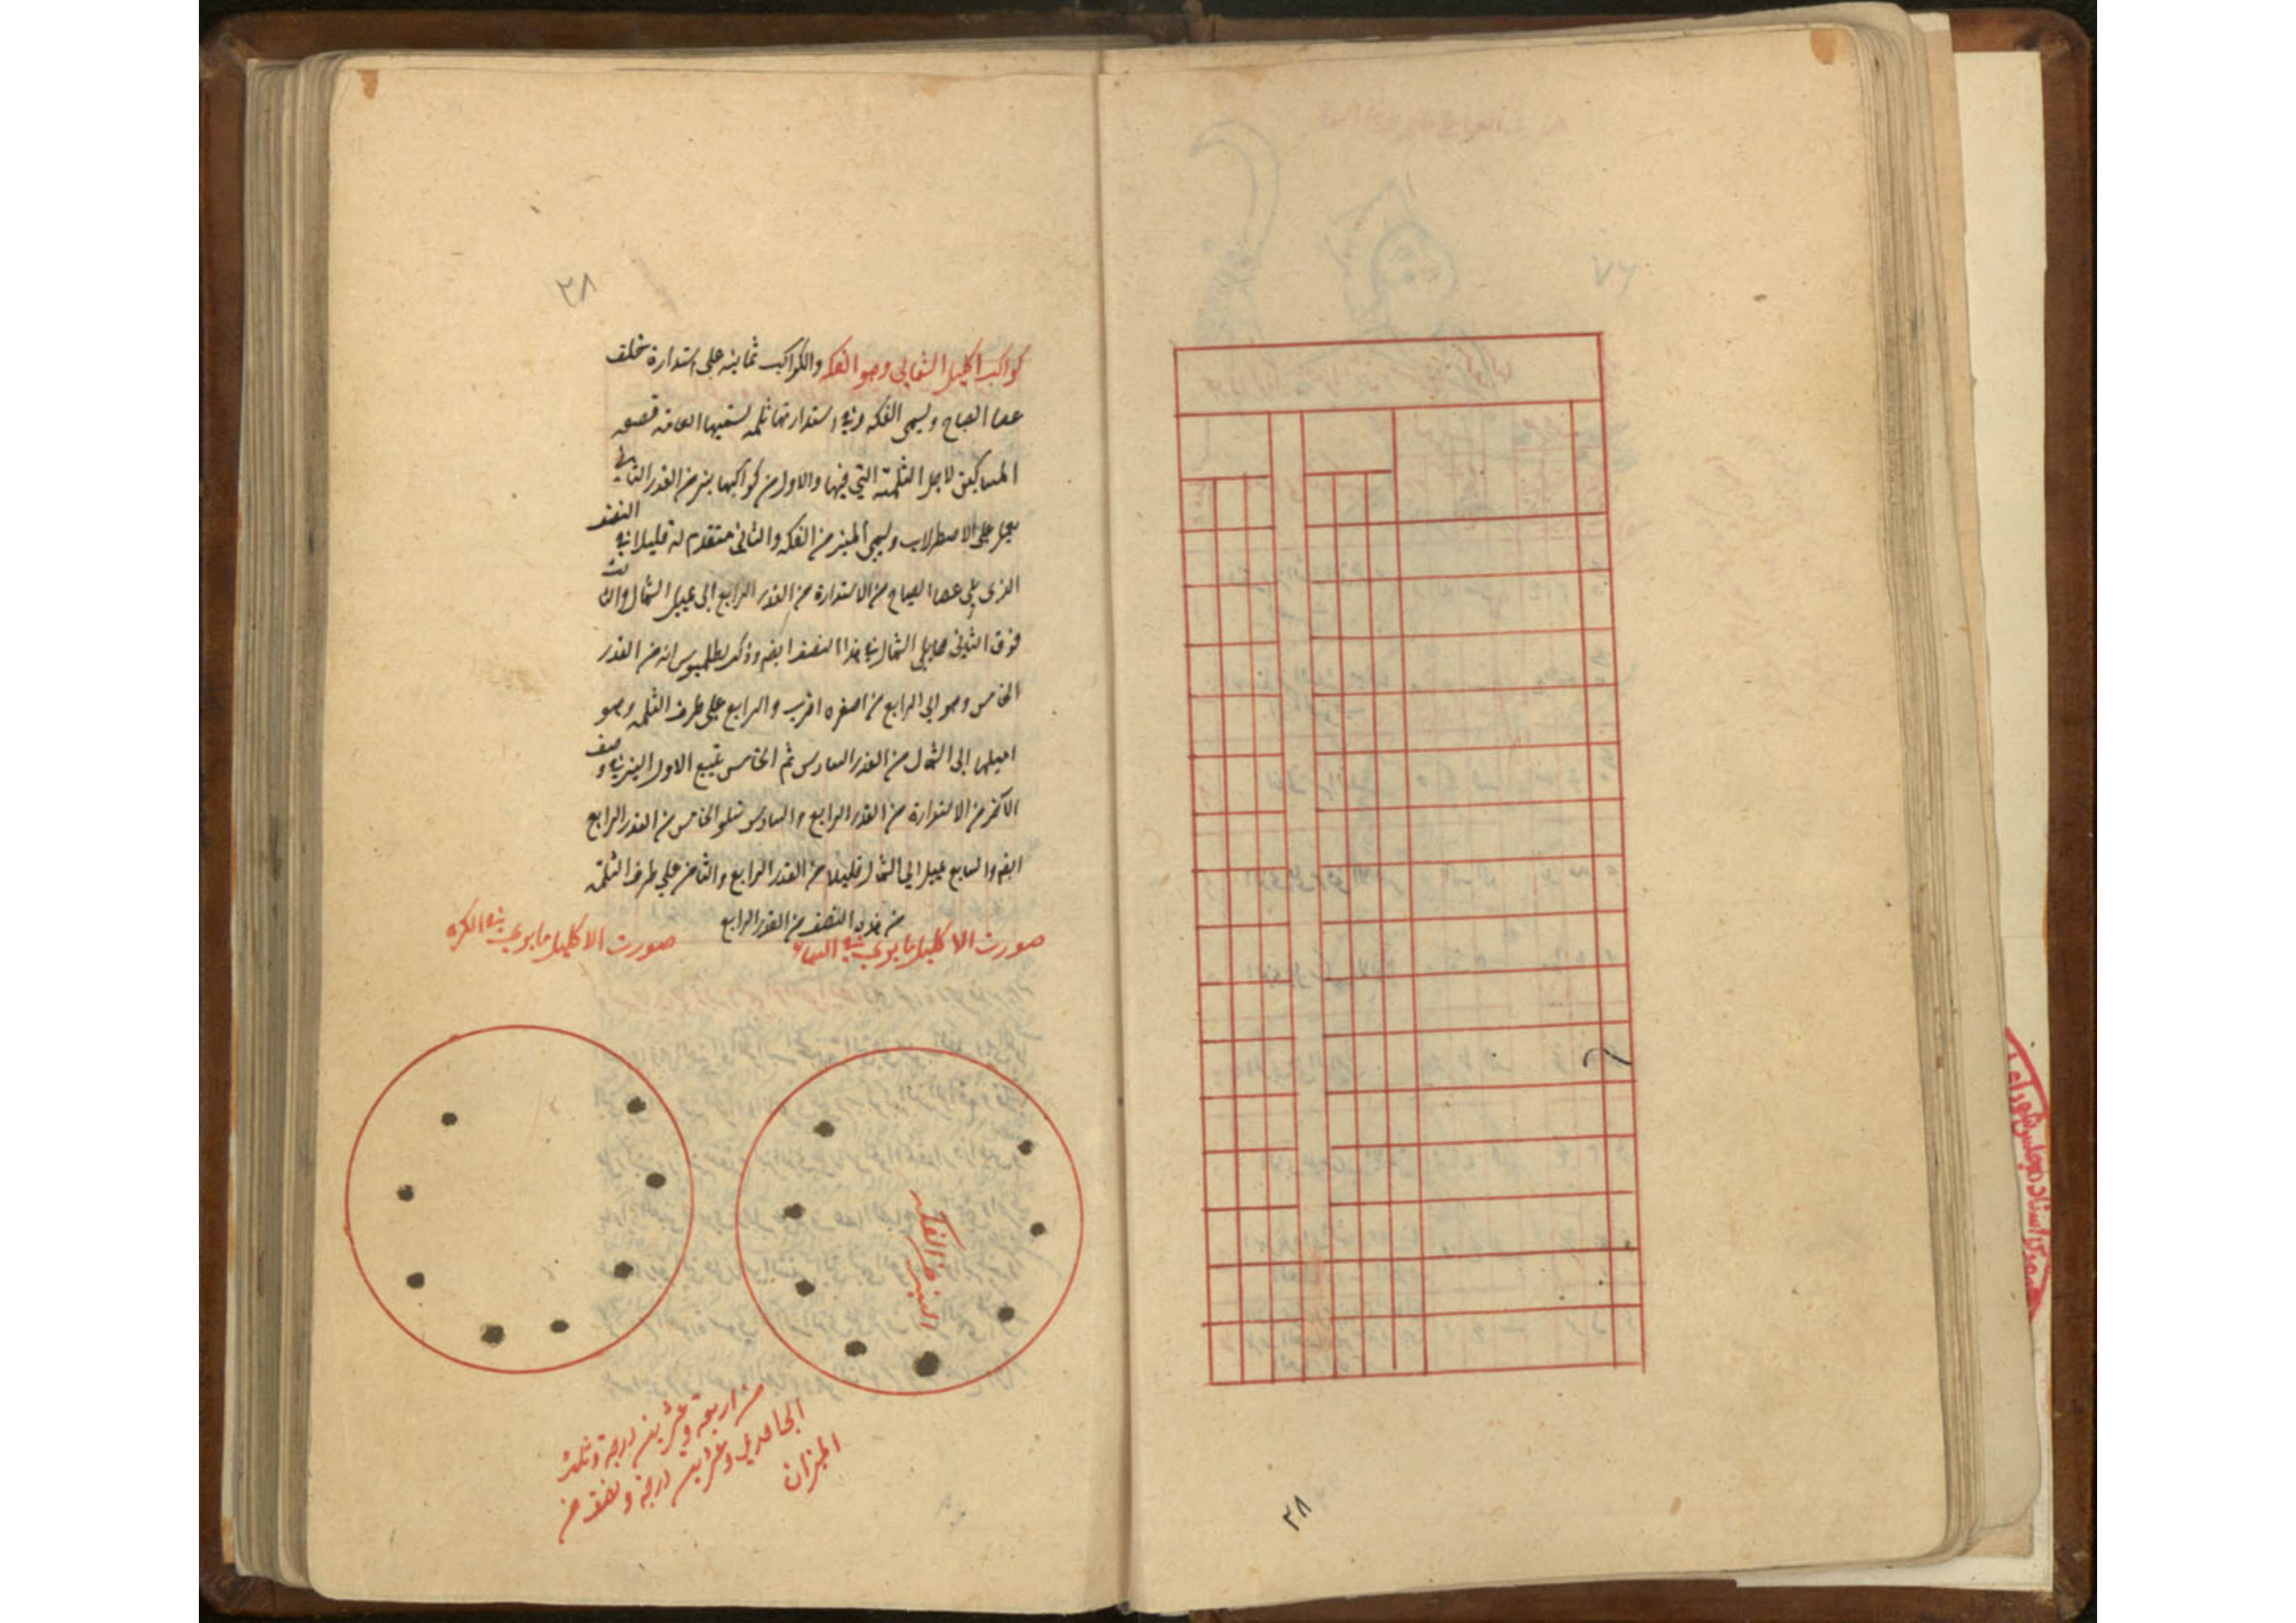 ٢٨
كواكب اكليل الشمالي وهو الفكه والكواكب ثمانيه على استدارة خلف
عصا الصياح ويسمى الفكه وفي استدارتها ثلمه تسميها العامه قصعه
المساكين لاجل الثلمة التي فيها والاول من كواكبها نير من القدر الثاني
على الاصطرلاب ويسمى المنير من الفكه والثاني متقدم له قليلا في النصف
الذي يلي عصا الصياح من الاستدارة من القدر الرابع الى عيل الشمال والثالث
فوق الثاني مما يلي الشمال في هذا النصف ايضه وذكر بطلميوس انه من القدر
الخامس وهو الى الرابع من اصغره اقرب والرابع على طرف الثلمه وهو
اميلها الى الشمال من القدر السادس ثم الخامس يتبع الاول النير في نصف
الآخر من الاستدارة من القدر الرابع والسادس يتلو الخامس من القدر الرابع
ايضه والسابع يميل الى الشمال قليلا من القدر الرابع والثامن على طرف الثلمه
من هذه النصف من القدر الرابع
صورت الاكليل ما يرى في السماء
صورت الاكليل ما يرى في الكره
المنير من الفكه
من اربعة وعشرين درجة وثلث
الحادي وعشرين درجة ونصف من
الميزان
٧٦
٢٨